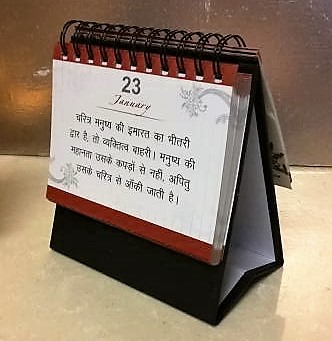 23
January
चरित्र मनुष्य की इमारत का भीतरी
द्वार है, तो व्यक्तित्व बाहरी। मनुष्य की
महानता उसके कपड़ों से नहीं, अपितु
उसके चरित्र से आँकी जाती है।